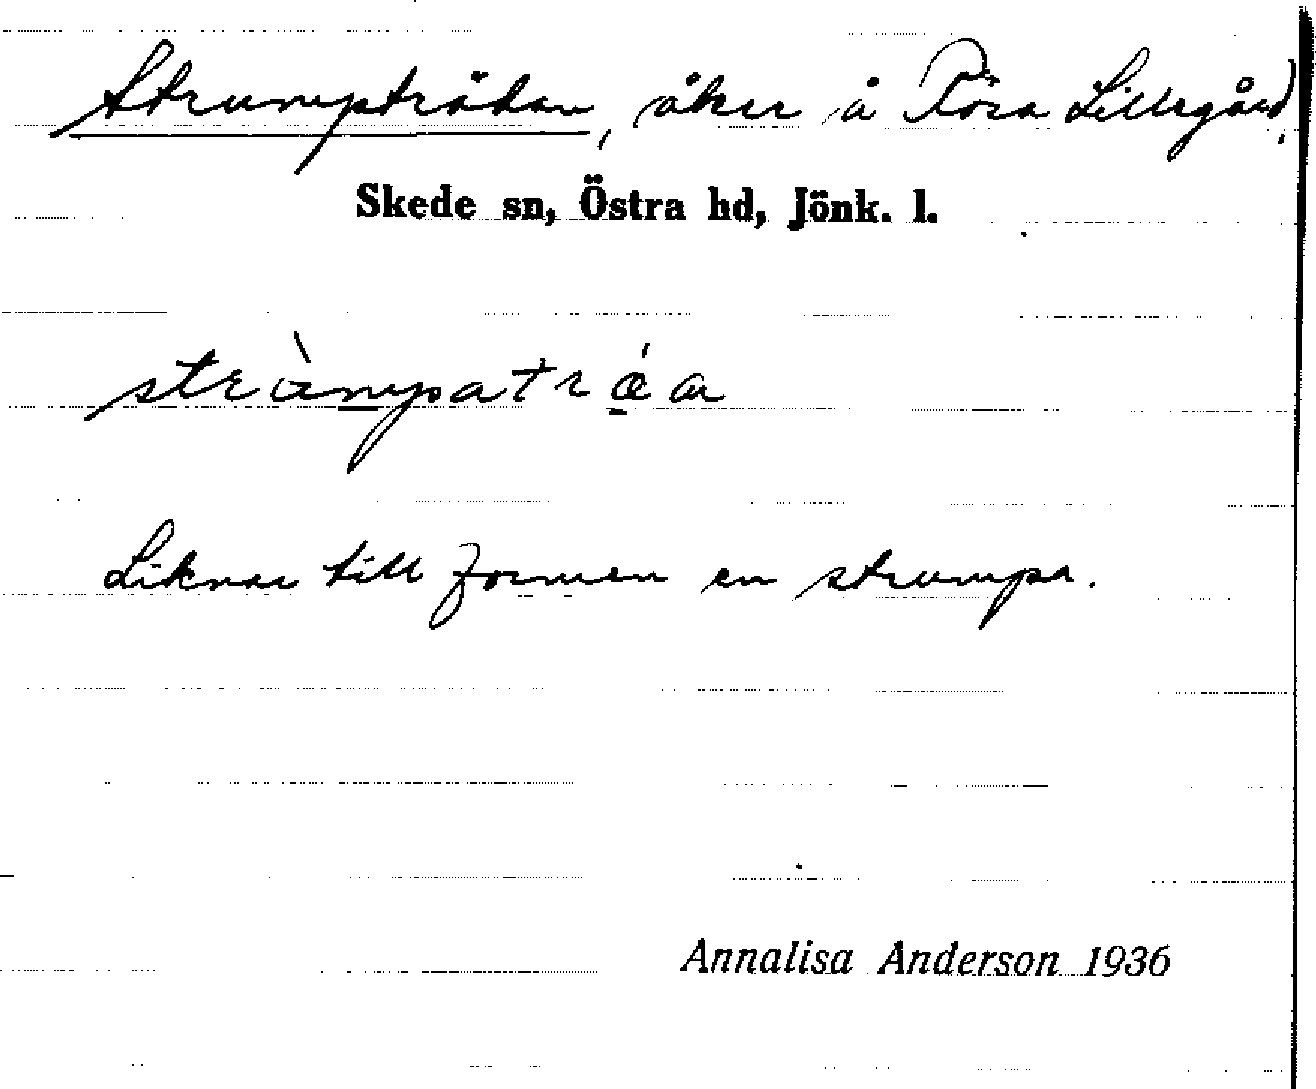 Strumpträdan, åker å Rösa Lillegård,
Skede sn, Östra hd, Jönk. l.
Liknar till formen en strumpa.
Annalisa Anderson 1936